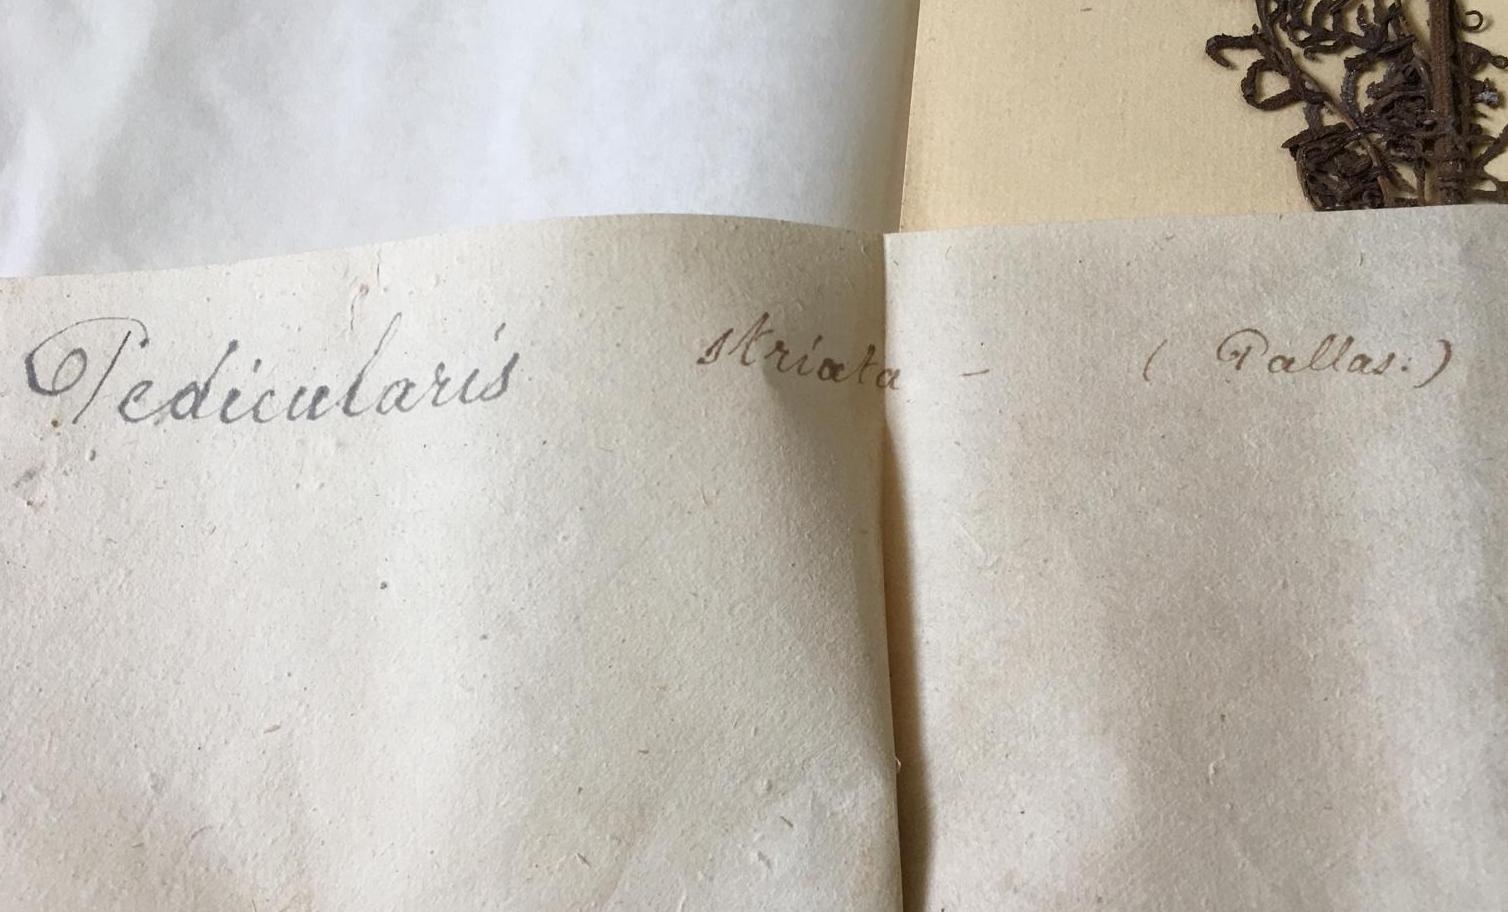 Pedicularis striata - (Pallas.)